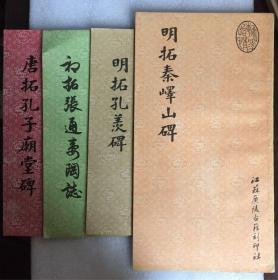 唐拓孔子廟堂碑
初拓張通妻陶誌
明拓孔羨碑
明拓秦嶧山碑
江蘇廣陵古籍刻印社